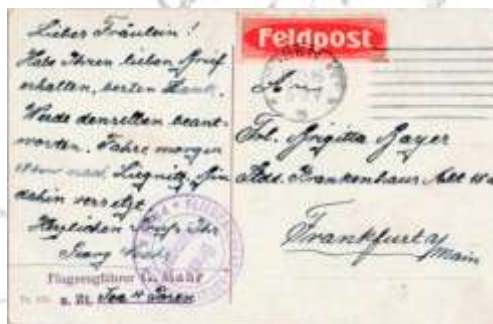 Liebes Fräulein!
Habe Ihren lieben Brief
erhalten, besten Dank.
Werde denselben beant-
worten. Fahre morgen
nach Liegnitz, bin
dahin versetzt.
Herzlichen Gruß Ihr
Georg
Flugzeugführer G. Mahr
z. Zt.
Feldpost
An
Frl. Brigitta Bayer
Städt. Krankenhaus
Frankfurt a/
Main